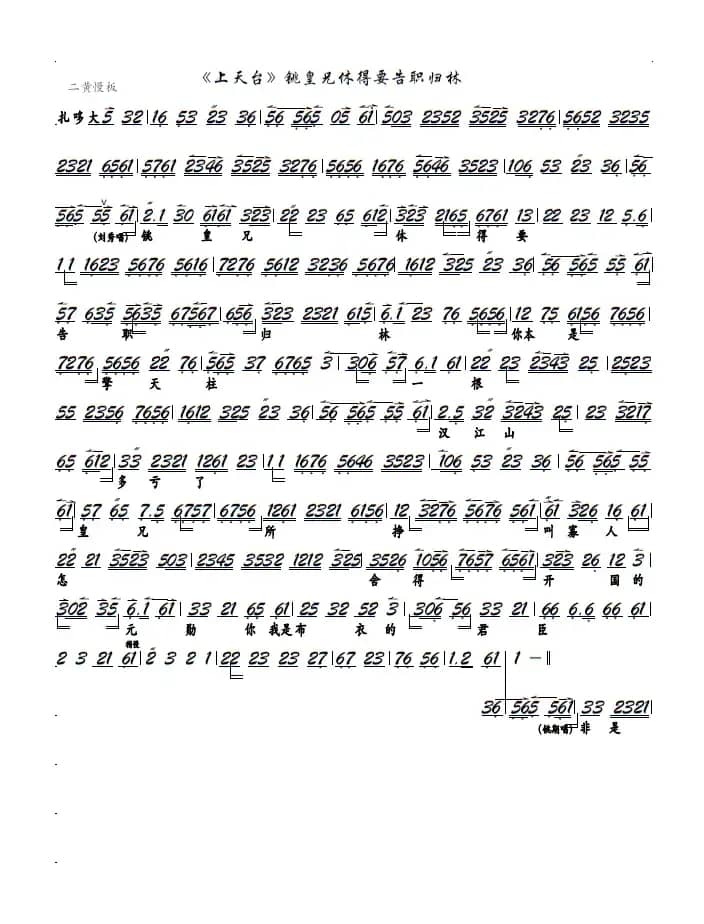 《上天台》铫皇兄休得要告职归林
二黄慢板
扎哆大5 32|16 53 23 36|56 565 05 61|503 2352 3525 3276|5652 3235
2321 6561|5761 2346 3525 3276|5656 1676 5646 3523|106 53 23 36|56
565 55 61|2.1 30 6161 323|22 23 65 612|323 2165 6761 13|22 23 12 5.6
(刘秀唱) 铫 皇 兄 休 得 要
11 1623 5676 5616|7276 5612 3236 5676|1612 325 23 36|56 565 55 61
57 635 5635 67567|656 323 2321 615|6.1 23 76 5656|12 75 6156 7656
告 职 归 林 你本 是
7276 5656 22 76|565 37 6765 3|306 57 6.1 61|22 23 2343 25|2523
擎 天 柱 一 根
55 2356 7656|1612 325 23 36|56 565 55 61|2.5 32 3243 25|23 3217
汉 江 山
65 612|33 2321 1261 23|11 1676 5646 3523|106 53 23 36|56 565 55
多 亏 了
61|57 65 7.5 6757|6756 1261 2321 6156|12 3276 5676 561|61 326 16 61
皇 兄 所 挣 叫 寡 人
22 21 3523 503|2345 3532 1212 325|3526 1056 7657 6561|323 26 12 3
怎 舍 得 开 国 的
302 35|6.1 61|33 21 65 61|25 32 52 3|306 56 33 21|66 6.6 66 61
元 勋 你 我是 布 衣 的 君 臣
稍慢
2 3 21 61|2 3 2 1|22 23 23 27|67 23|76 56|1.2 61|1 -‖
36|565 561|33 2321
(铫期唱) 非 是